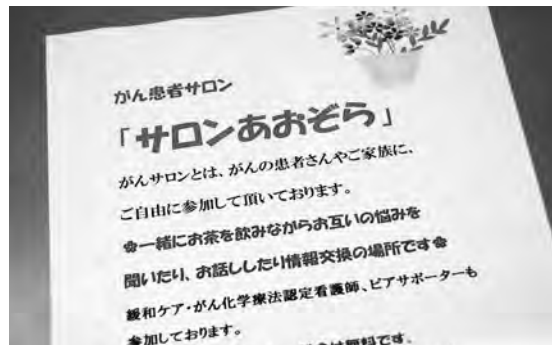 がん患者サロン
「サロンあおぞら」
がんサロンとは、がんの患者さんやご家族に、
ご自由に参加して頂いております。
✿一緒にお茶を飲みながらお互いの悩みを
聞いたり、お話ししたり情報交換の場所です✿
緩和ケア・がん化学療法認定看護師、ピアサポーターも
参加しております。
は無料です。